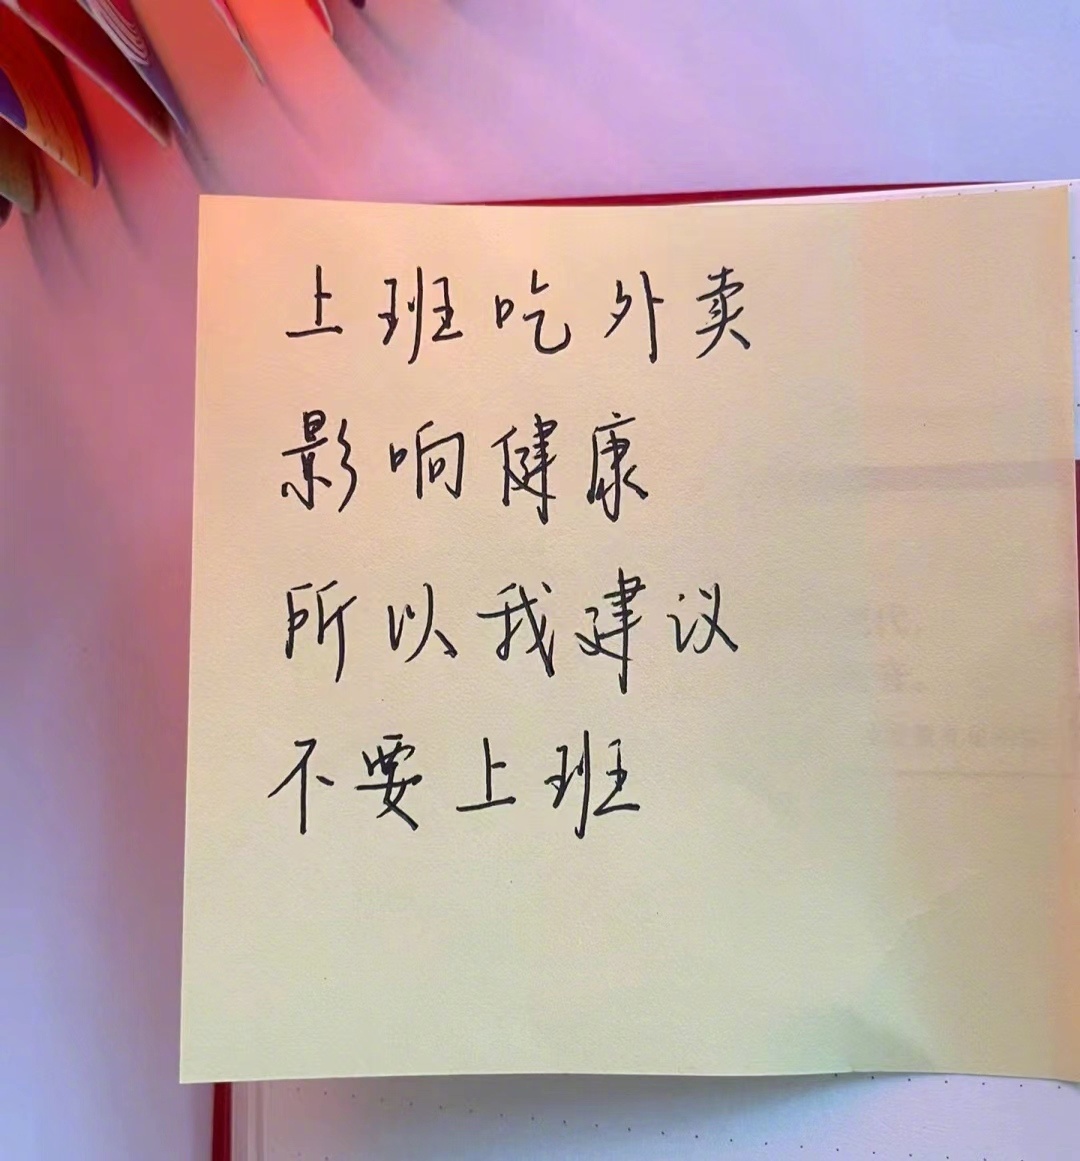 上班吃外卖
影响健康
所以我建议
不要上班